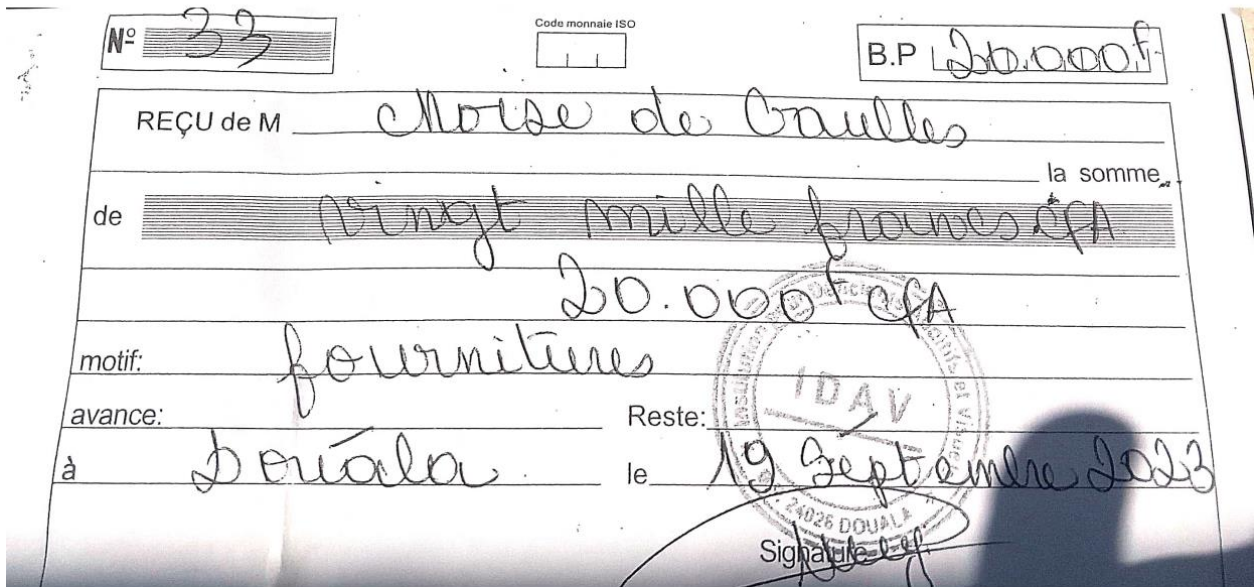 Nº 33
Code monnaie ISO
B.P 20.000f
REÇU de M Moïse de Gaulles
la somme
de vingt mille francs CFA
20.000f CFA
motif: fournitures
avance: Reste:
à Douala le 19 Septembre 2023
IDAV
24026 DOUALA
Signature